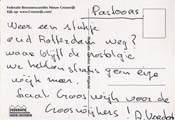 Federatie Bewonerscomités Nieuw Crooswijk
Kijk op: www.Crooswijk.com!
Pastoors
Weer een stukje
oud Rotterdam weg?
waar blijft de nostalgie
we hebben straks geen eige
wijk meer.
Social Crooswijk voor de
Crooswijkers!